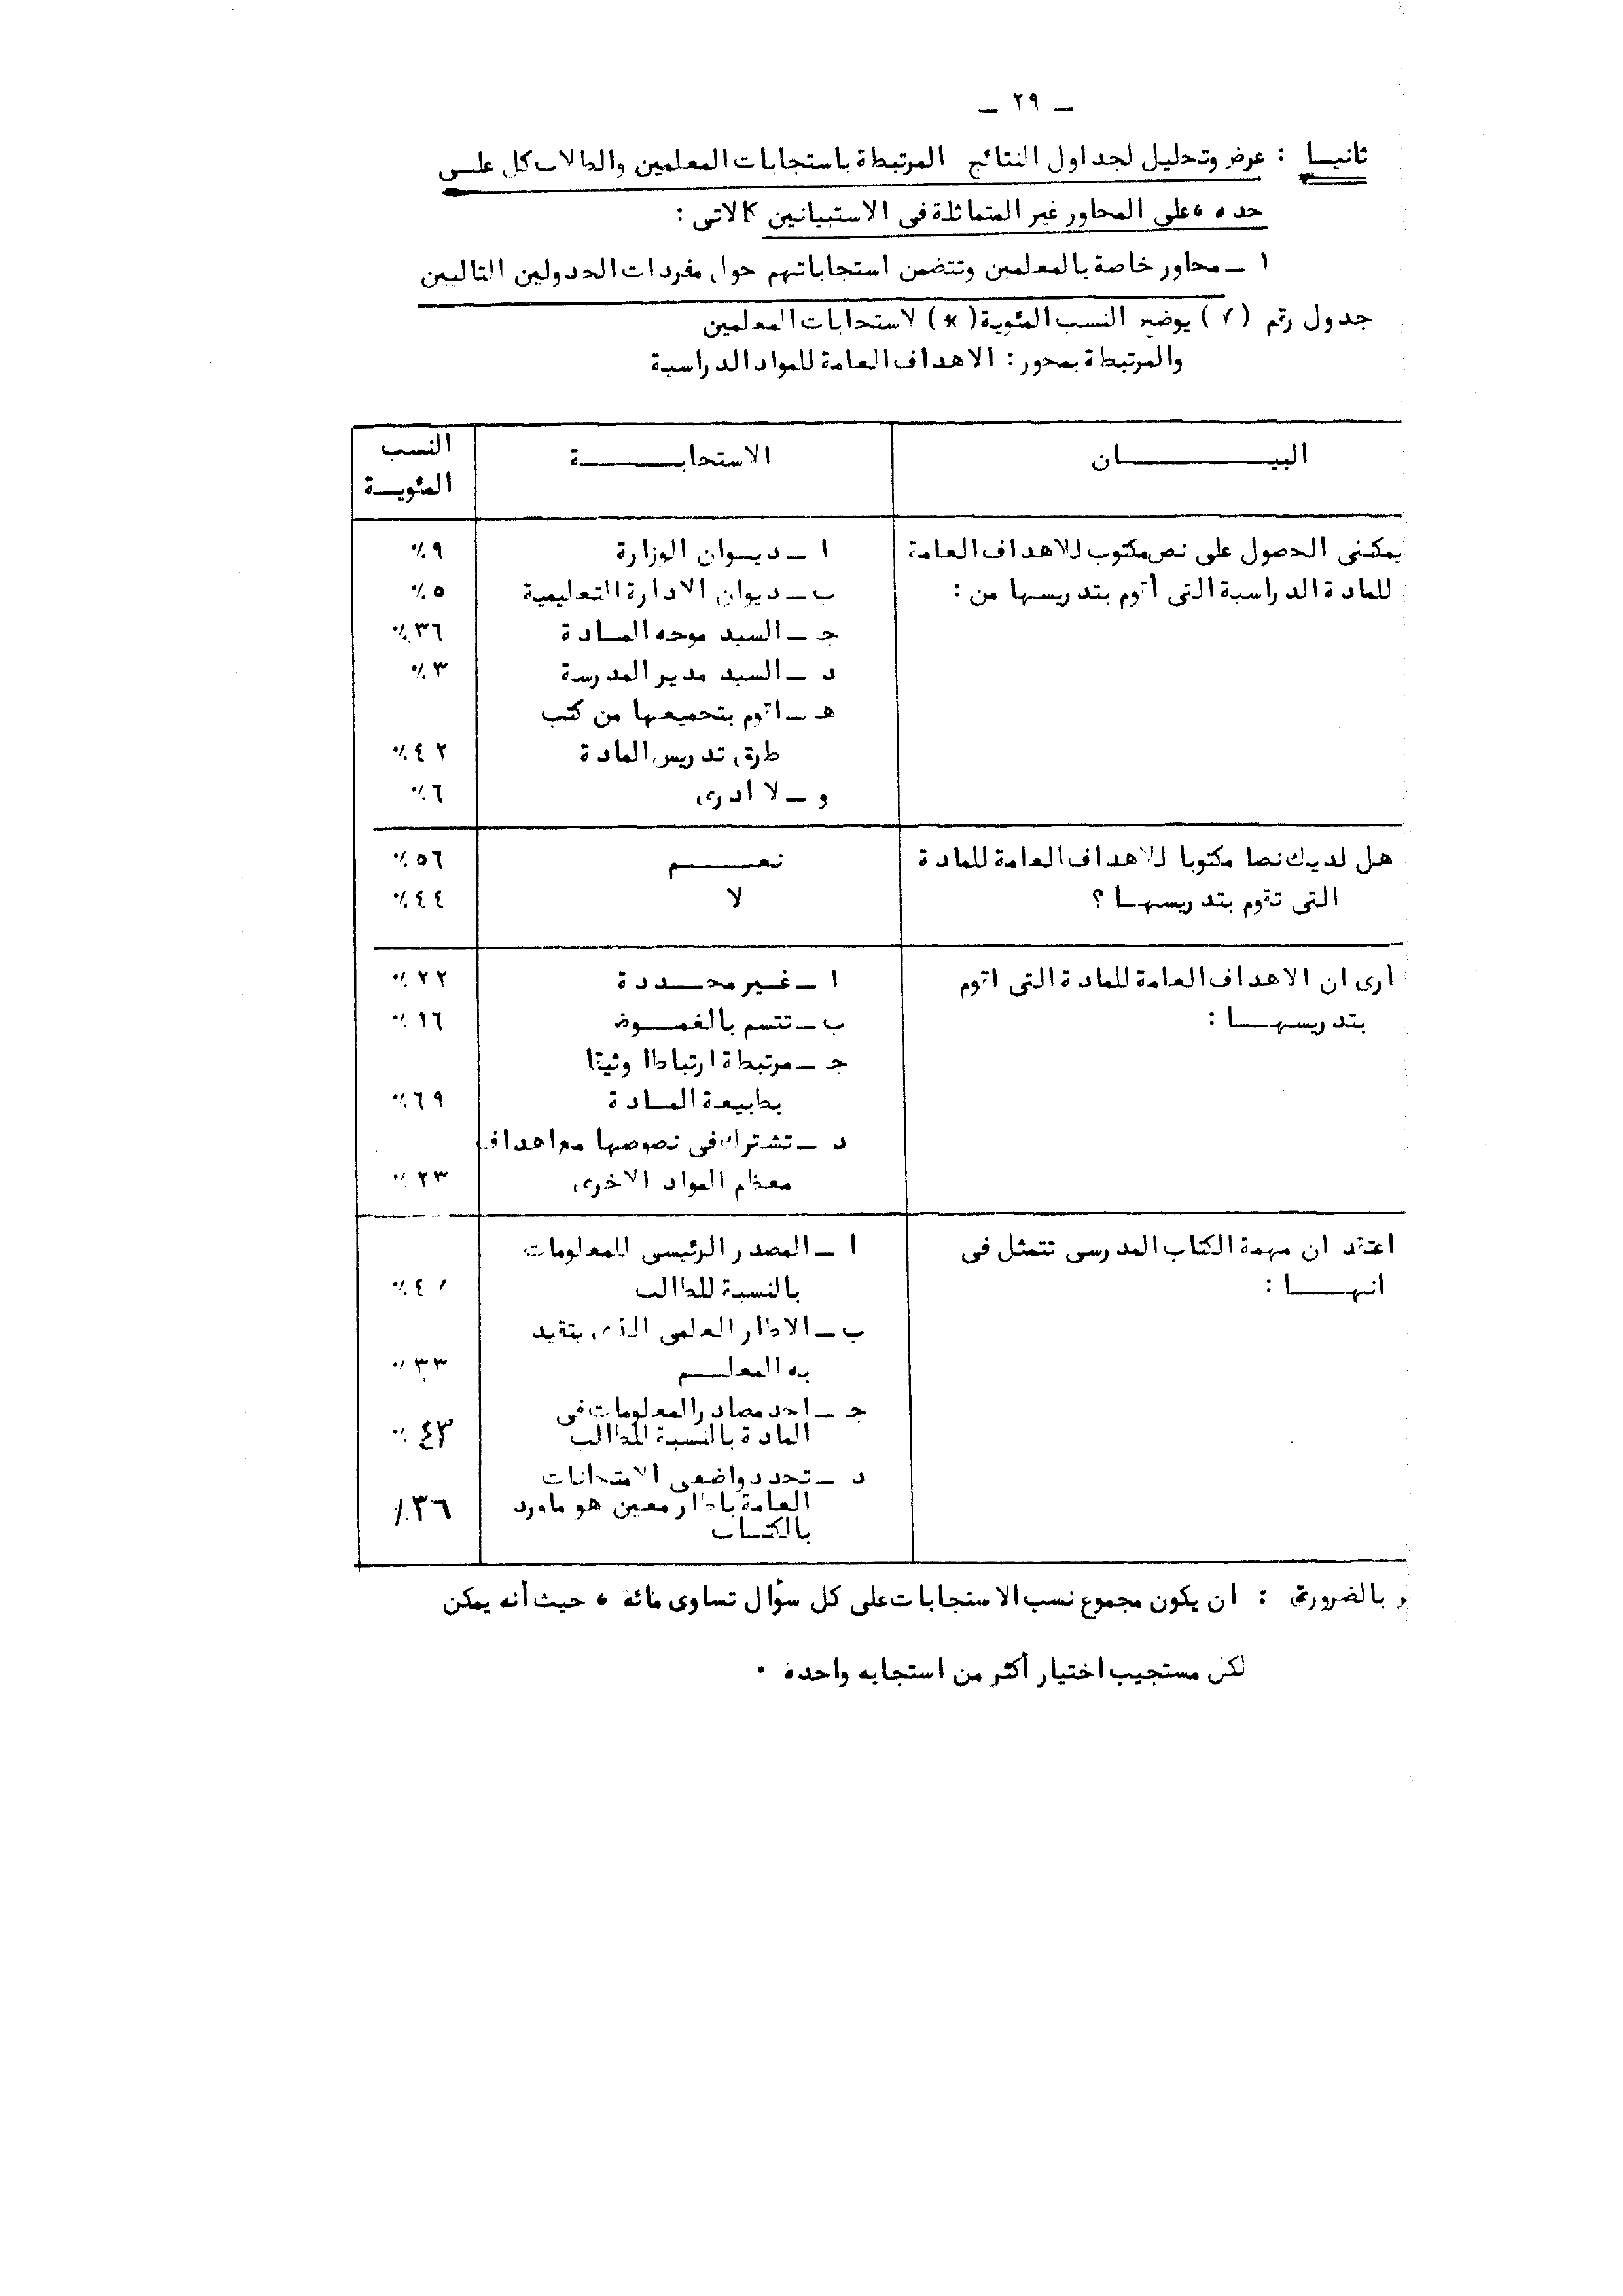 — ٢٩ —
ثانيـا : عرض وتحليل لجداول النتائج المرتبطة باستجابات المعلمين والطلاب كل علـى
حده ، على المحاور غير المتماثلة فى الاستبيانين كالاتى :
١ — محاور خاصة بالمعلمين وتتضمن استجاباتهم حول مفردات الجدولين التاليين
جدول رقم ( ) يوضح النسب المئوية (*) لاستجابات المعلمين
والمرتبطة بمحور : الاهداف العامة للمواد الدراسية
البيـــــان الاستجابـــــة النسب
المئويـة
يمكنى الحصول على نص مكتوب للاهداف العامة ا — ديـوان الوزارة ٩٪
للمادة الدراسية التى أقوم بتدريسها من : ب — ديوان الادارة التعليمية ٥٪
جـ — السيد موجه المـادة ٣٦٪
د — السيد مدير المدرسة ٣٪
هـ — اقوم بتجميعها من كتب
طرق تدريس المادة ٤٢٪
و — لا أدرى ٦٪
هل لديك نصا مكتوبا للاهداف العامة للمادة نعـــم ٥٦٪
التى تقوم بتدريسهـا ؟ لا ٤٤٪
ارى ان الاهداف العامة للمادة التى اقوم ا — غـير محــددة ٢٢٪
بتدريسهــا : ب — تتسم بالغمـوض ١٦٪
جـ — مرتبطة ارتباطا وثيقا
بطبيعة المـادة ٦٩٪
د — تشترك فى نصوصها مع اهداف
معظم المواد الاخرى ٢٣٪
اعتقد ان مهمة الكتاب المدرسى تتمثل فى ا — المصدر الرئيسى للمعلومات
انهـــا : بالنسبة للطالب
ب — الاطار العلمى الذى يتقيد
به المعلــم ٣٣٪
جـ — احد مصادر المعلومات فى
المادة بالنسبة للطالب ٤٣٪
د — تحدد واضعى الامتحانات
العامة باطار معين هو ماورد ٣٦٪
بالكتـاب
بالضرورة : ان يكون مجموع نسب الاستجابات على كل سؤال تساوى مائة ، حيث أنه يمكن
لكل مستجيب اختيار أكثر من استجابه واحده .